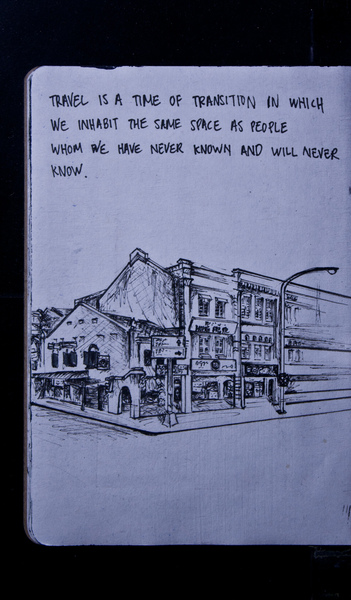 TRAVEL IS A TIME OF TRANSITION IN WHICH
WE INHABIT THE SAME SPACE AS PEOPLE
WHOM WE HAVE NEVER KNOWN AND WILL NEVER
KNOW.